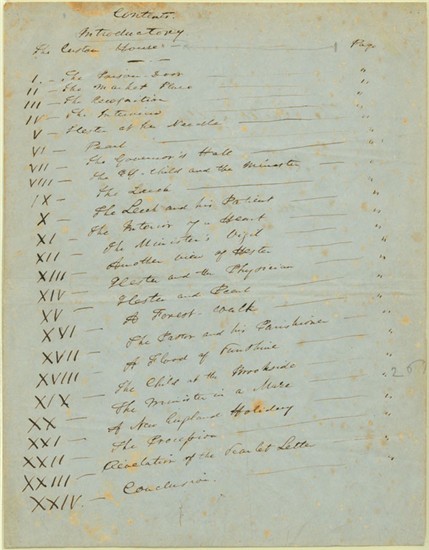 Contents.
Introductory
The Custom House — 1 Page
I. — The Prison-Door — "
II — The Market Place — "
III — The Recognition — "
IV — The Interview — "
V — Hester at her Needle — "
VI — Pearl — "
VII — The Governor's Hall — "
VIII — The Elf-Child and the Minister — "
IX — The Leech — "
X — The Leech and his Patient — "
XI — The Interior of a Heart — "
XII — The Minister's Vigil — "
XIII — Another View of Hester — "
XIV — Hester and the Physician — "
XV — Hester and Pearl — "
XVI — A Forest Walk — "
XVII — The Pastor and his Parishioner — "
XVIII — A Flood of Sunshine — "
XIX — The Child at the Brookside — "
XX — The Minister in a Maze — "
XXI — New England Holiday — "
XXII — The Procession — "
XXIII — Revelation of the Scarlet Letter — "
XXIV. — Conclusion. — "